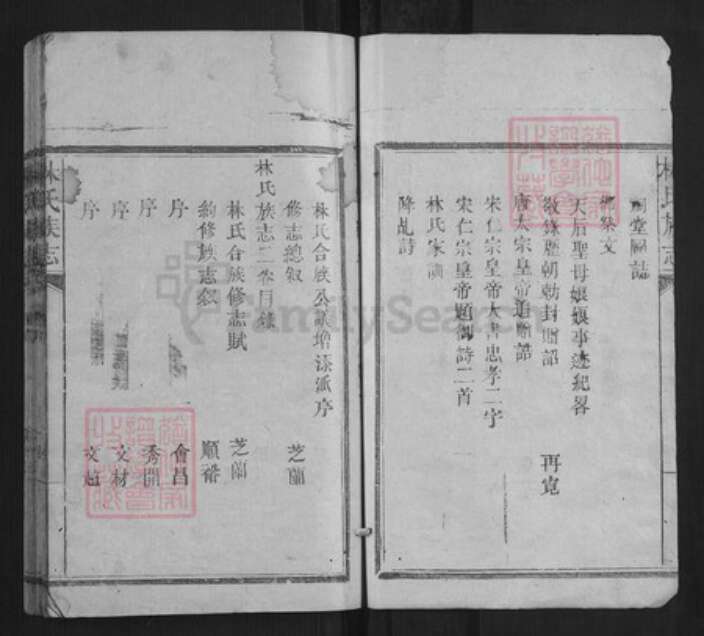 林氏族志
祠堂圖誌
祭文
天后聖母娘娘事蹟紀畧
敬錄歷朝勅封贈詔 再寬
唐太宗皇帝追贈誥
宋仁宗皇帝大書忠孝二字
宋仁宗皇帝題御詩二首
林氏家訓
降乩詩
林氏合族公議增添派序
修志總叙 芝蘭
林氏族志二卷目錄
林氏合族修志賦 芝蘭
約修族志叙 順裕
序 會昌
序 秀開
序 文材
序 文超
林氏族志
FamilySearch